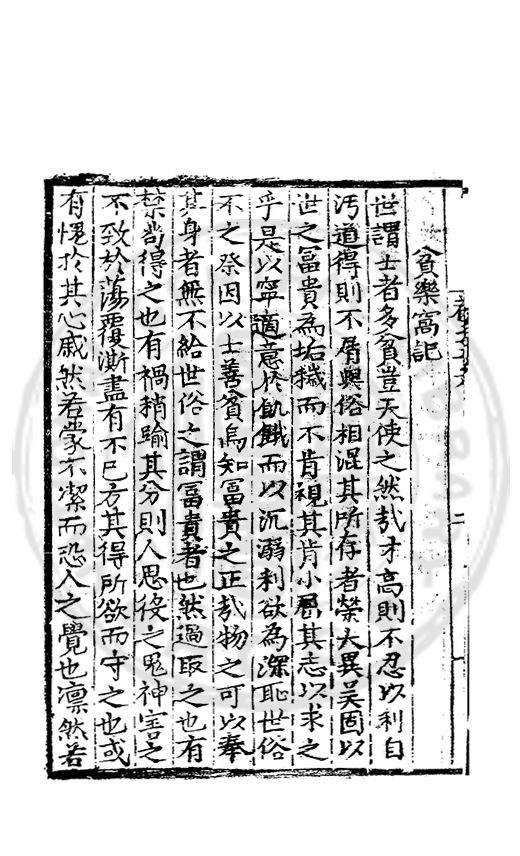 貧樂窩記
世謂士者多貧豈天使之然哉才高則不忍以利自
汚道得則不屑與俗相混其所存者榮大異矣固以
世之冨貴為垢穢而不肯視其肯小屈其志以求之
乎是以寧適意於飢餓而以沉溺利欲為深恥世俗
不之察因以士善貧烏知冨貴之正哉物之可以奉
其身者無不給世俗之謂冨貴者也然過取之也有
禁苟得之也有禍稍踰其分則人思後之鬼神害之
不致於蕩覆澌盡有不已方其得所欲而守之也或
有愧於其心戚然若蒙不潔而恐人之覺也凛然若
二